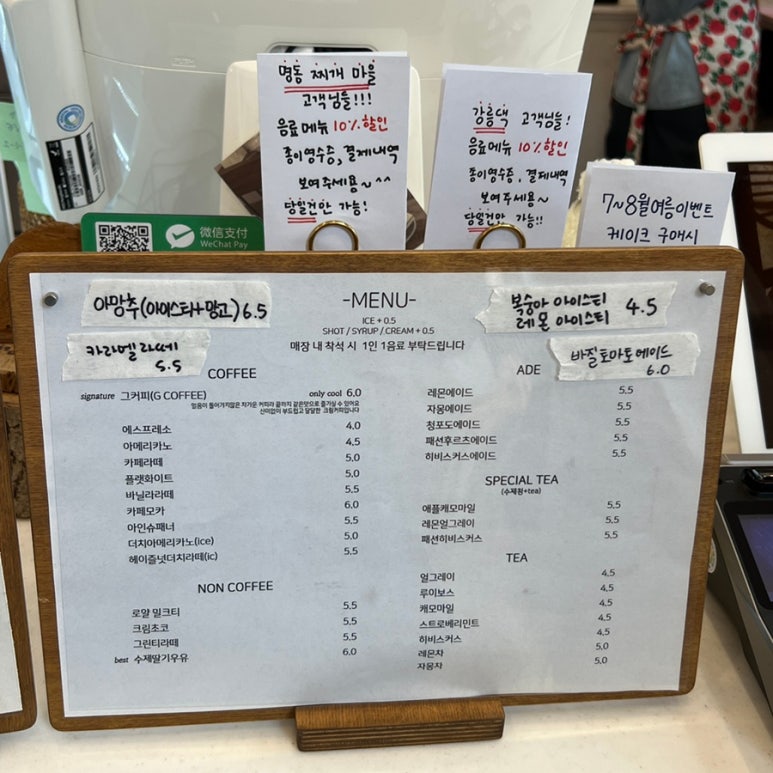 명동 찌개 마을
고객님들!!!
음료메뉴 10%할인
종이영수증, 결제내역
보여주세용~^^
당일건만 가능!
강릉댁 고객님들!
음료메뉴 10%할인
종이영수증, 결제내역
보여주세용~
당일건만 가능!!
7~8월여름이벤트
케이크 구매시
微信支付
WeChat Pay
아망추(아이스티+망고) 6.5
카라멜라떼
5.5
-MENU-
ICE + 0.5
SHOT / SYRUP / CREAM + 0.5
매장 내 착석 시 1인 1음료 부탁드립니다
복숭아 아이스티
레몬 아이스티 4.5
바질토마토에이드
6.0
COFFEE
signature 그커피(G COFFEE) only cool 6.0
얼음이 들어가지않은 차가운 커피라 끝까지 같은맛으로 즐기실 수 있어요
산미없이 부드럽고 달달한 크림커피입니다
에스프레소 4.0
아메리카노 4.5
카페라떼 5.0
플랫화이트 5.0
바닐라라떼 5.5
카페모카 6.0
아인슈패너 5.5
더치아메리카노(ice) 5.0
헤이즐넛더치라떼(ic) 5.5
NON COFFEE
로얄 밀크티 5.5
크림초코 5.5
그린티라떼 5.5
best 수제딸기우유 6.0
ADE
레몬에이드 5.5
자몽에이드 5.5
청포도에이드 5.5
패션후르츠에이드 5.5
히비스커스에이드 5.5
SPECIAL TEA
(수제청+tea)
애플캐모마일 5.5
레몬얼그레이 5.5
패션히비스커스 5.5
TEA
얼그레이 4.5
루이보스 4.5
캐모마일 4.5
스트로베리민트 4.5
히비스커스 4.5
레몬차 5.0
자몽차 5.0